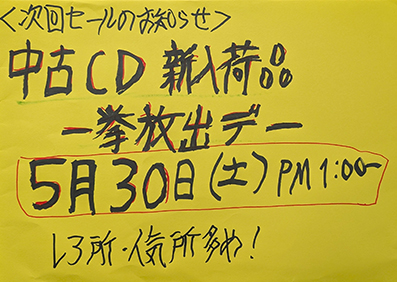 <次回セールのお知らせ>
中古CD 新入荷品
一挙放出デー
5月30日(土)PM1:00~
レア所・人気所多め!